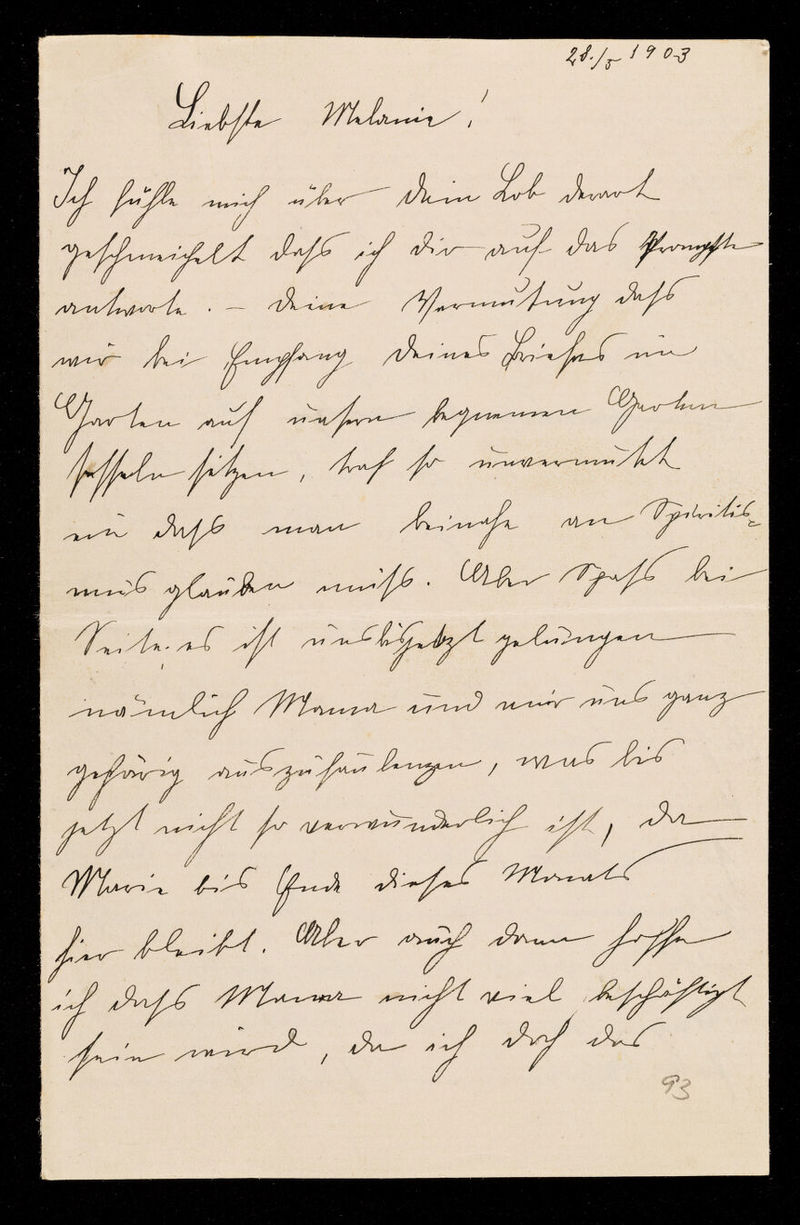 28./5 1903
Liebste Melanie!
Ich fühle mich über dein Lob derart
geschmeichelt dass ich dir auf das Prompste
antworte. – Deine Vermutung dass
wir bei Empfang deines Briefes im
Garten auf unsern bequemen Garten
sesseln sitzen, traf so unvermutet
ein dass man beinahe an Spiritis=
mus glauben muss. Aber Spass bei
Seite; es ist uns bisjetzt gelungen
nämlich Mama und mir uns ganz
gehörig auszufaulenzen, was bis
jetzt nicht so verwunderlich ist, da
Marie bis Ende dieses Monats
hier bleibt. Aber auch dann hoffe
ich dass Mama nicht viel beschäftigt
sein wird, da ich doch das
93